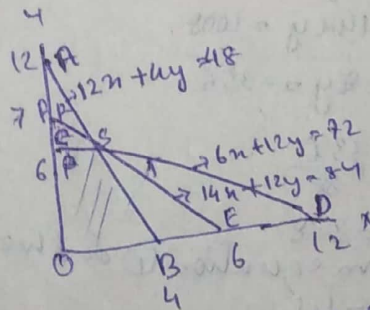 y
12 A
→ 12x + 4y = 48
7 P
S
6
→ 6x + 12y = 72
→ 14x + 12y = 84
E
D
x
O
B
6
12
4